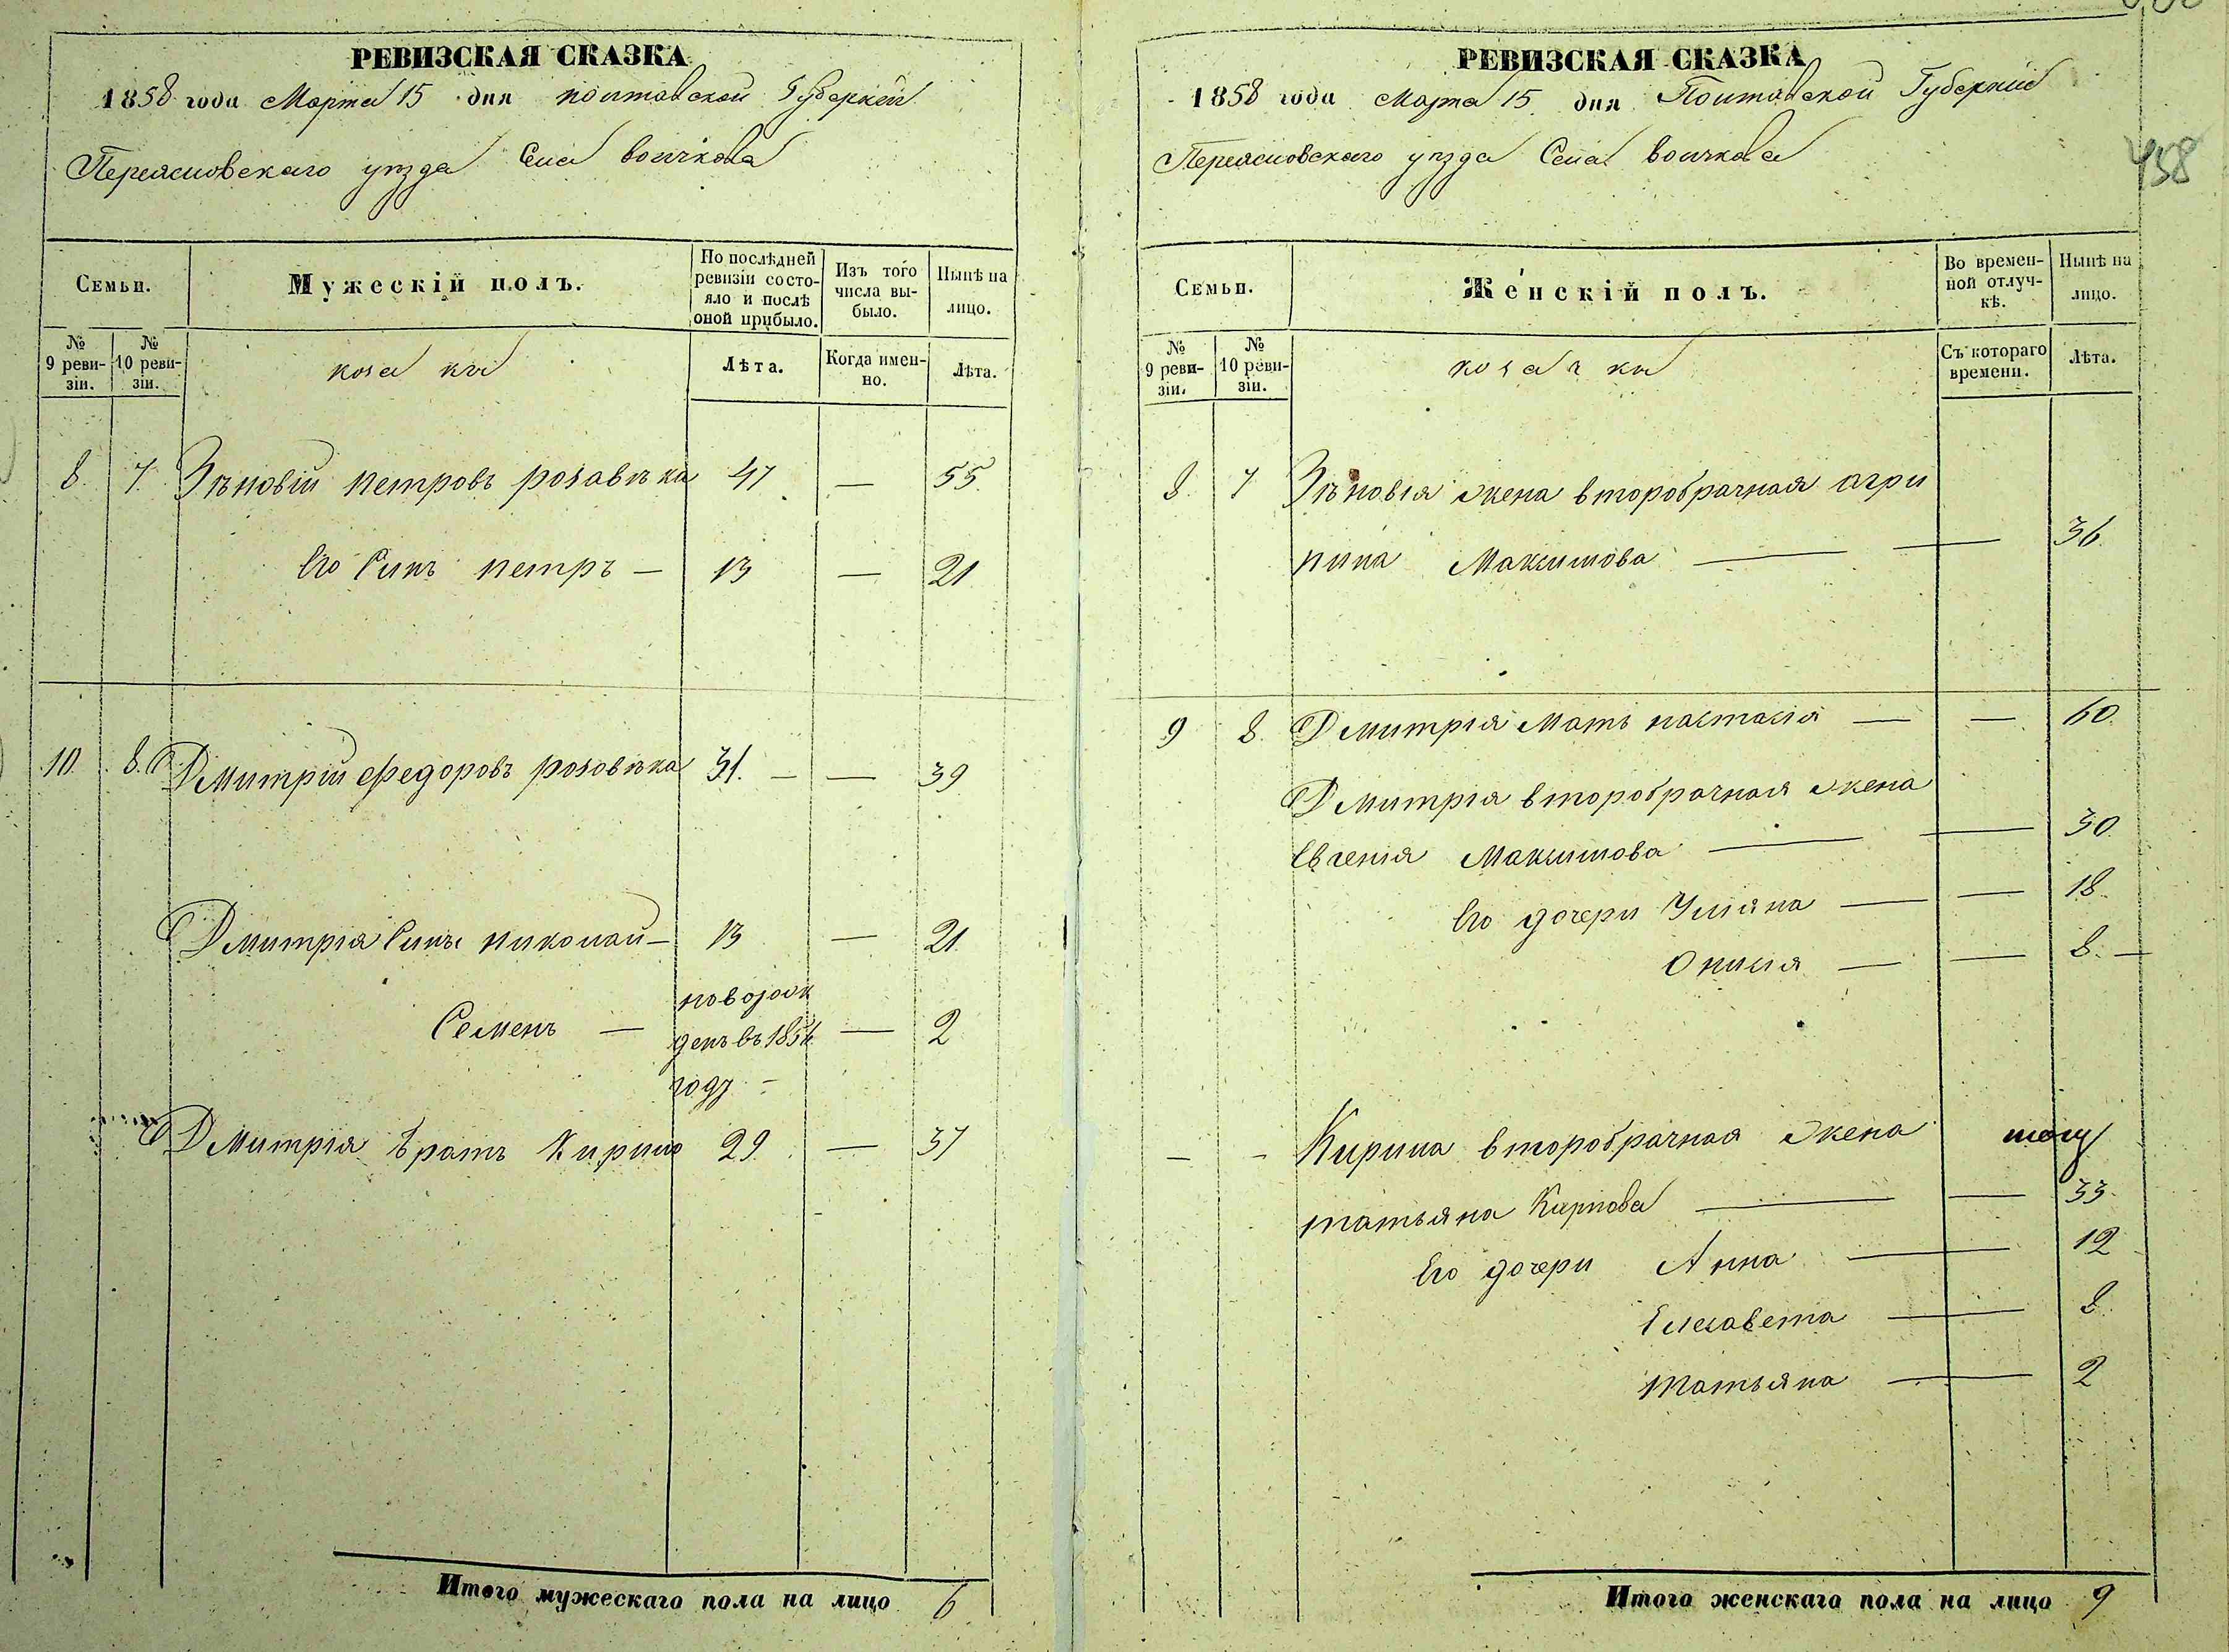 РЕВИЗСКАЯ СКАЗКА
1858 года Марта 15 дня полтавской Губернии
Переясловскаго уѣзда Села волчкова
Семьи.
Мужескій полъ.
По послѣдней ревизіи состояло и послѣ оной прибыло.
Изъ того числа выбыло.
Нынѣ на лицо.
№ 9 ревизіи.
№ 10 ревизіи.
козаки
Лѣта.
Когда именно.
Лѣта.
8. 7. Зѣновій петровъ розавѣка 47 — 55.
Его Синъ петръ — 13 — 21
10. 8. Дмитрій федоровъ розовѣка 31. — — 39
Дмитрія Сины николай — 13 — 21.
Семенъ — новорожденъ въ 1856 году — — 2
Дмитрія братъ Кирило 29 — 37
Итого мужескаго пола на лицо 6
РЕВИЗСКАЯ СКАЗКА
1858 года Марта 15 дня Полтавской Губернии
Переясловскаго уѣзда Села волчкова
458
Семьи.
Женскій полъ.
Во временной отлучкѣ.
Нынѣ на лицо.
№ 9 ревизіи.
№ 10 ревизіи.
козачки
Съ котораго времени.
Лѣта.
8. 7 Зѣновія жена второбрачная агри
пина Максимова — — 36.
9 8. Дмитрія Мать настасія — — 60.
Дмитрія второбрачная жена
Евгенія Максимова — — 30.
Его дочери Уліяна — — 18.
Онисія — — 8. —
— - Кирила второбрачная жена
татьяна Карпова — — 33.
Его дочери Анна — 12
Елесавета — 8.
татьяна — 2
Итого женскаго пола на лицо 9